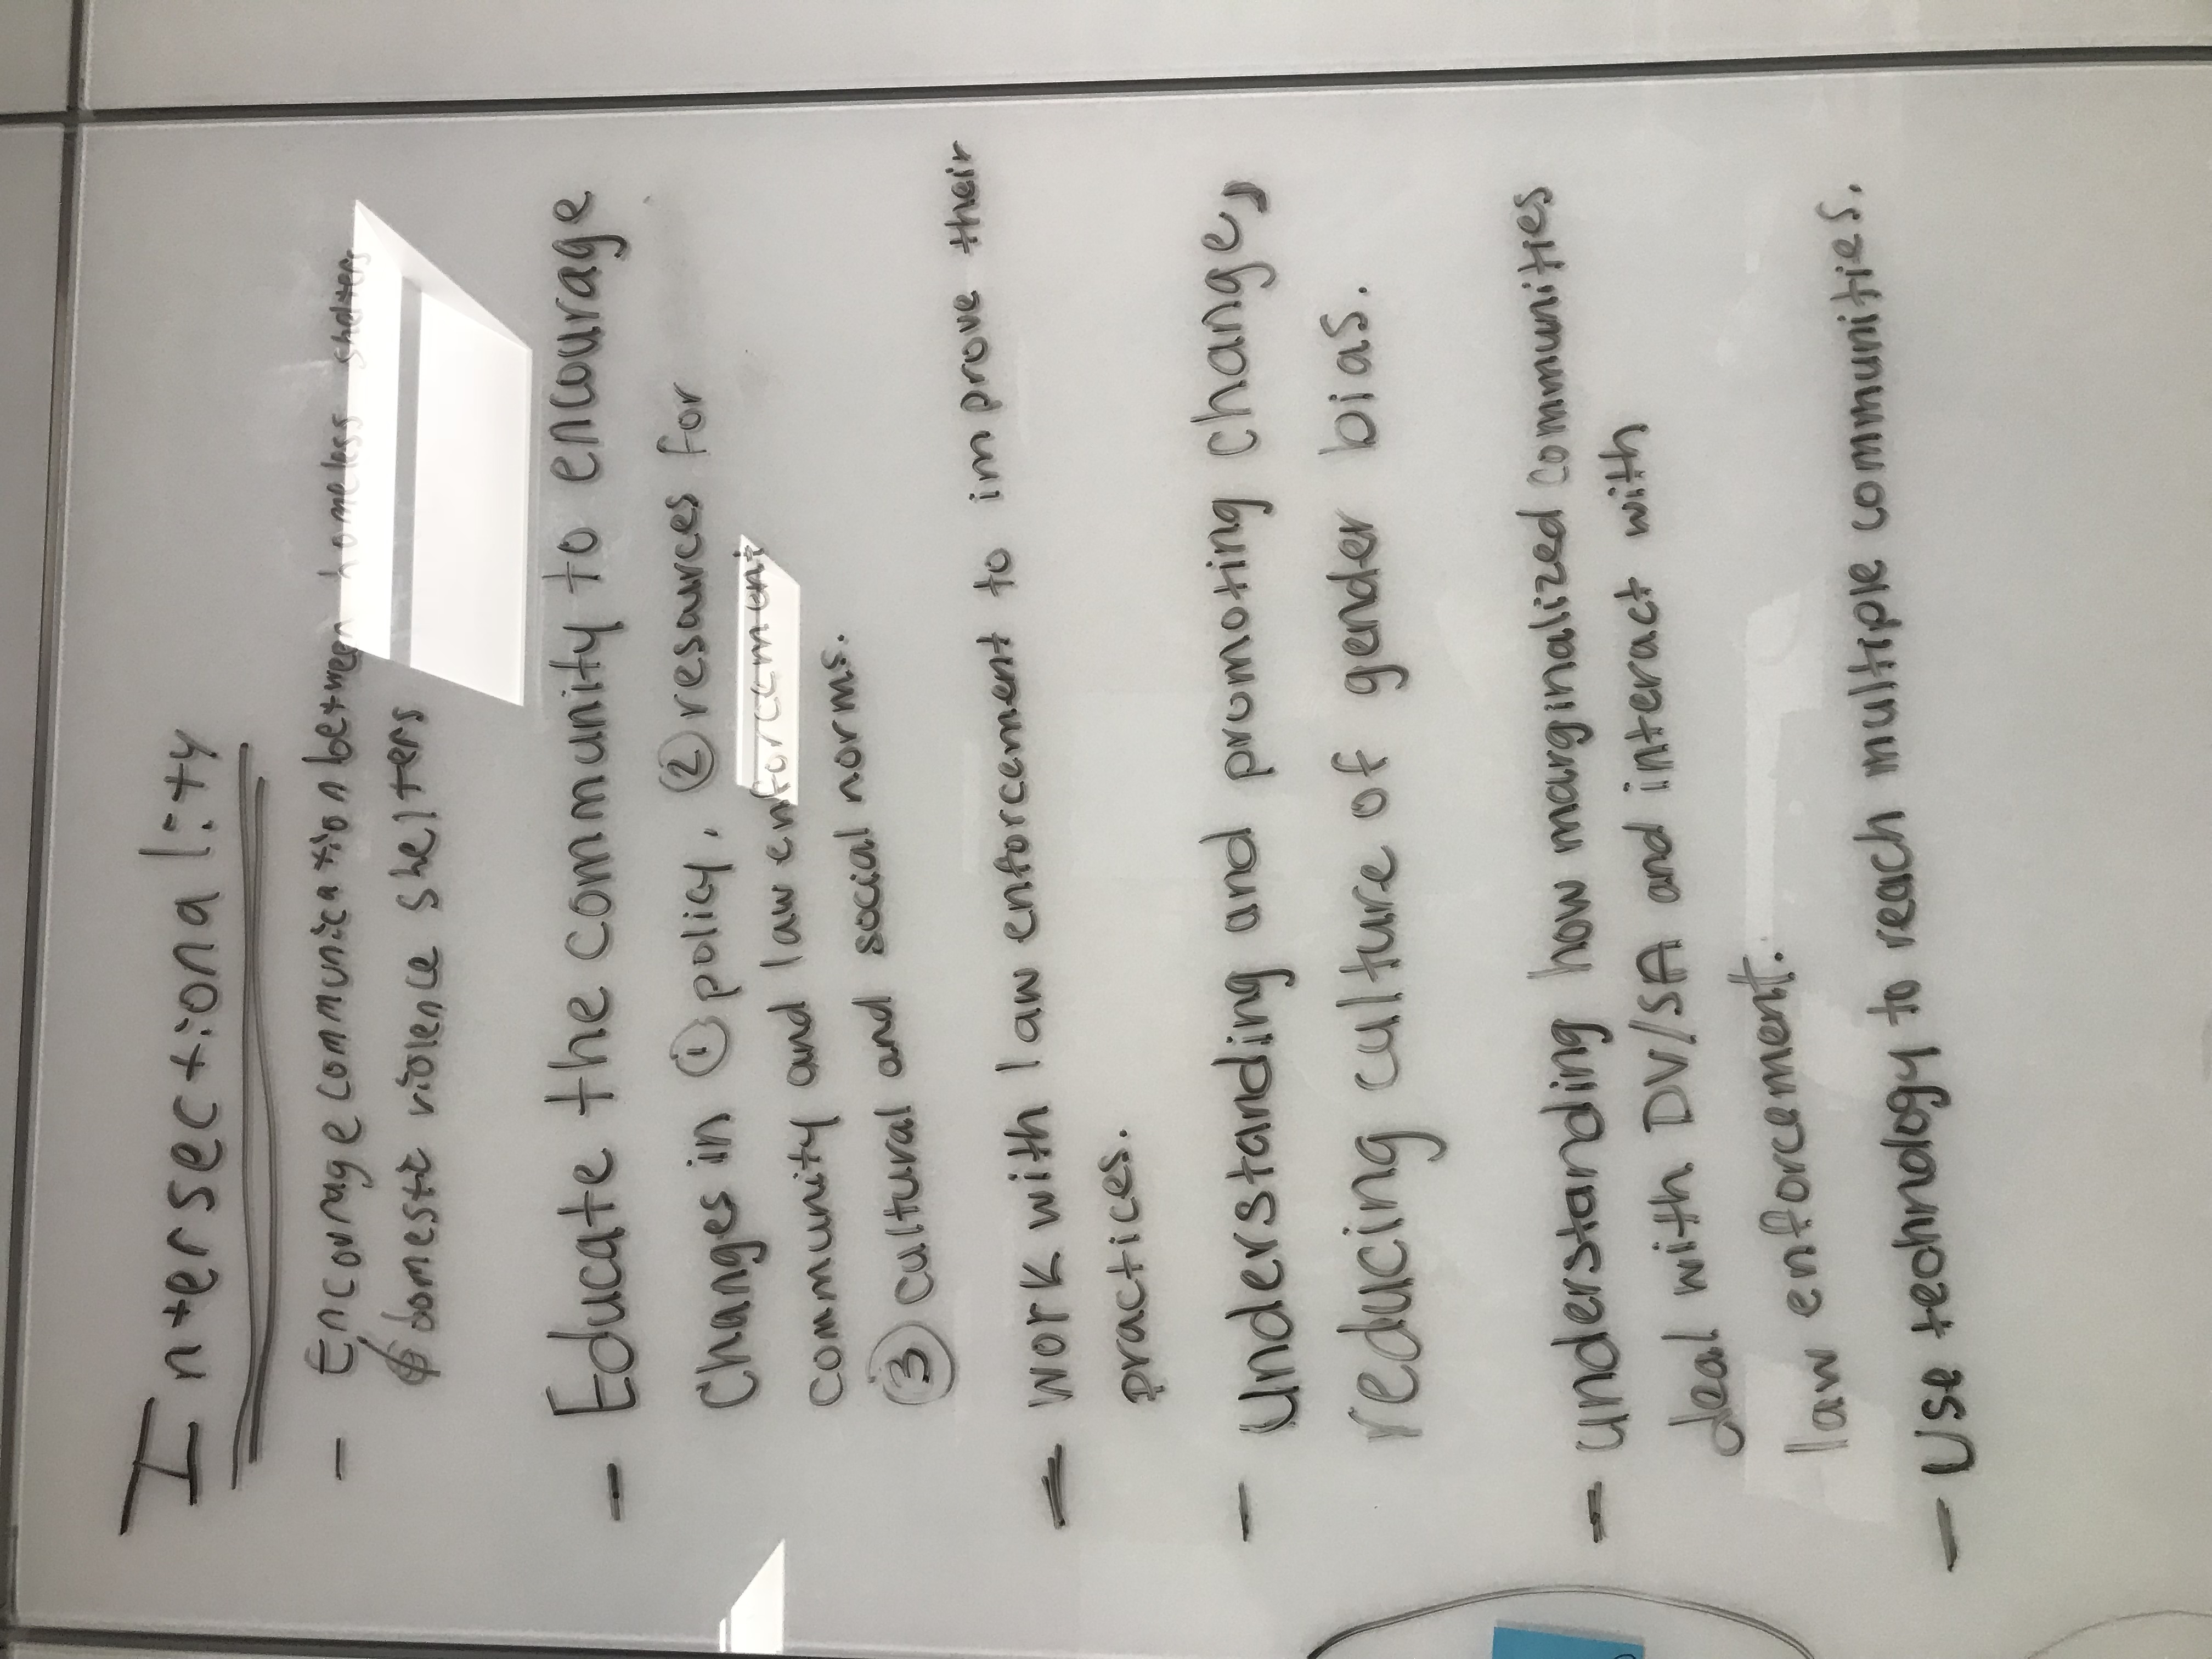 Intersectionality
- Encourage communication between homeless shelters
& domestic violence shelters
- Educate the community to encourage
Changes in ① policy, ② resources for
community and law enforcement
③ cultural and social norms.
- Work with law enforcement to improve their
practices.
- Understanding and promoting change,
reducing culture of gender bias.
- understanding how marginalized communities
deal with DV/SA and interact with
law enforcement.
- Use technology to reach multiple communities.